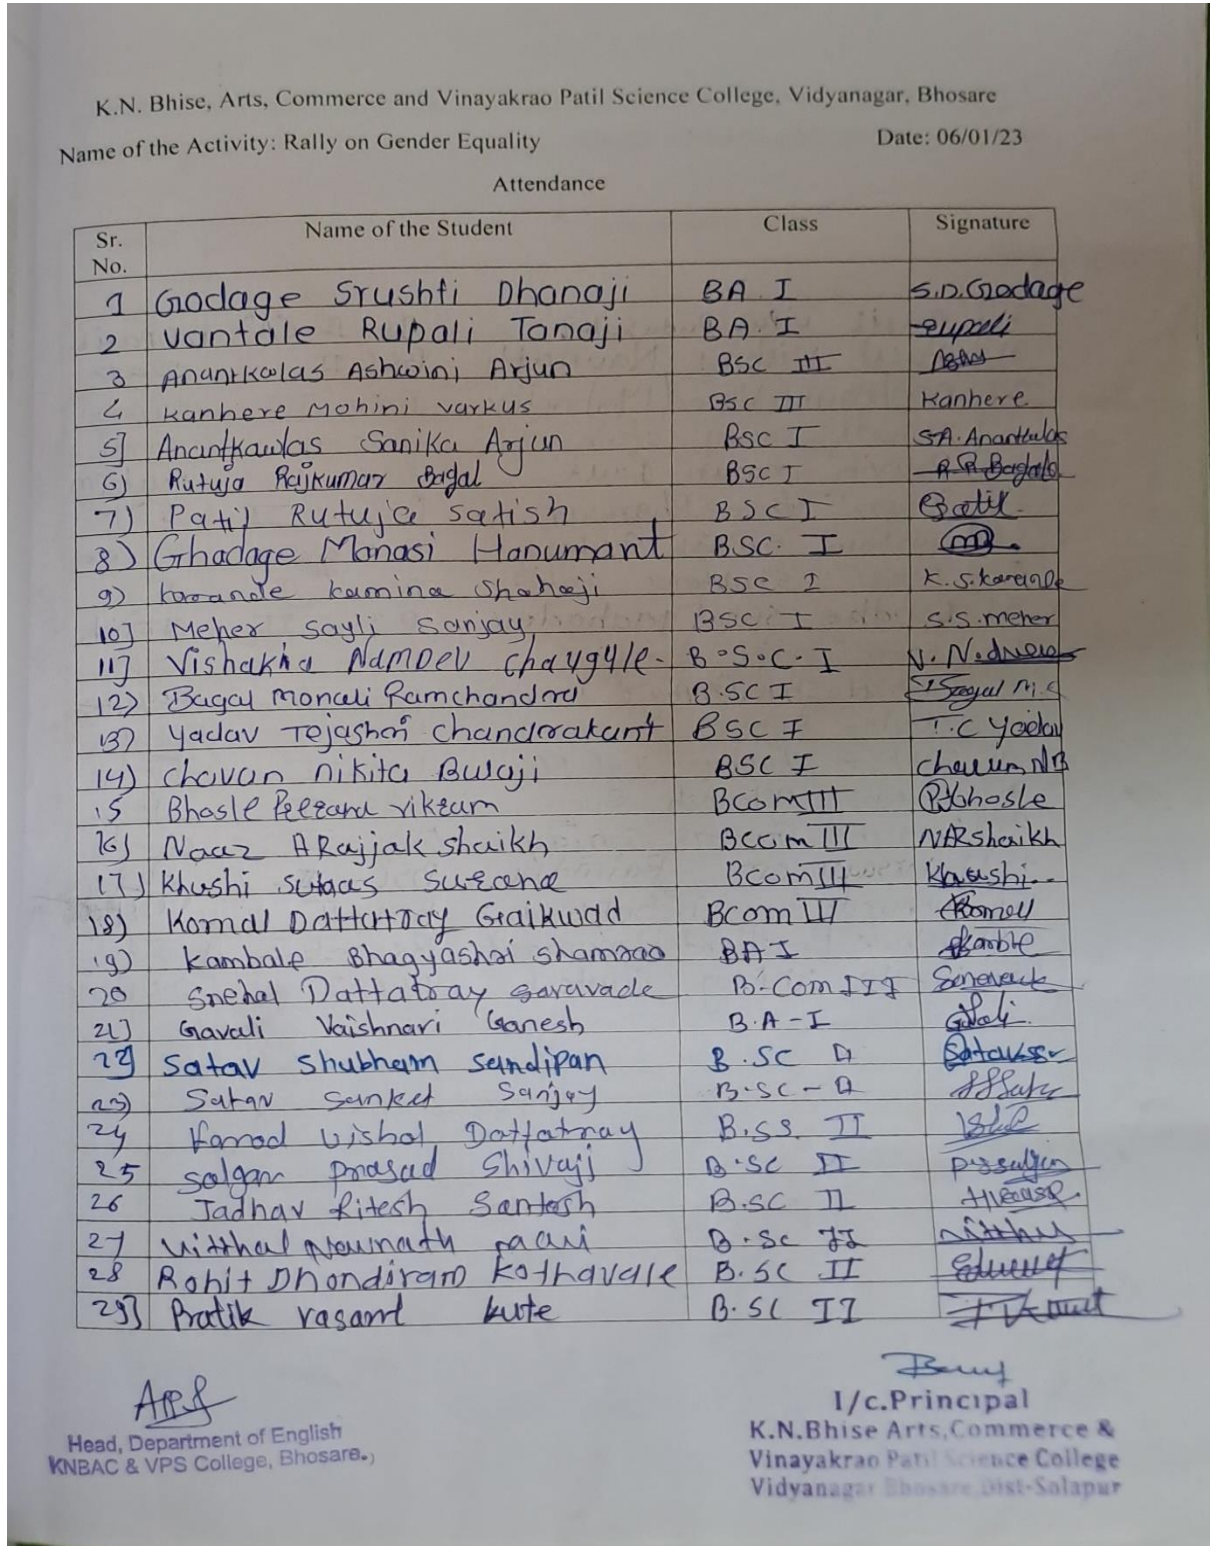 K.N. Bhise, Arts, Commerce and Vinayakrao Patil Science College, Vidyanagar, Bhosare
Name of the Activity: Rally on Gender Equality Date: 06/01/23
Attendance
Sr. No. Name of the Student Class Signature
1 Godage Srushti Dhanaji BA I S.D.Godage
2 Vantale Rupali Tanaji BA. I Rupali
3 Anantkwlas Ashwini Arjun BSC III
4 Kanhere Mohini varkus BSC III Kanhere
5] Anantkawlas Sanika Arjun BSC I S.A. Ananthulas
6) Rutuja Rajkumar Bagal BSC I
7) Patil Rutuja Satish BSC I Patil
8) Ghadage Manasi Hanumant BSC. I
9) Karande kamina Shahaji BSC I K.S.Karande
10] Meher Sayli Sanjay BSC I S.S.meher
11] Vishakha NamDev Chaugule. B.S.C. I
12) Bagal Monali Ramchandra B.SC I Bagal M.
13) Yadav Tejashri Chandrakant BSC I T.C Yadav
14) Chavan Nikita Bulaji BSC I
15 Bhosle vikram BcomIII Bhosle
16) Naaz ARajjak Shaikh BcomIII NARshaikh
17) Khushi BcomIII Khushi..
18) Komal Dattatray Gaikwad Bcom III Komal
19) Kambale Bhagyashri Shamrao BA I Kamble
20 Snehal Dattatray Garavade B.Com III
21] Gavali Vaishnavi Ganesh B.A-I
22] Satav Shubham Sandipan B.SC II
23) Satav Sanket Sanjay B.SC-II
24 Vishal Dattatray B.SS. II
25 Salgar Prasad Shivaji B.SC II
26 Jadhav Ritesh Santosh B.SC II
27 Vitthal Navnath B.Sc II
28 Rohit Dhondiram Kothavale B.SC II
29] Pratik vasant kute B.SC II
I/c.Principal
Head, Department of English K.N.Bhise Arts,Commerce &
KNBAC & VPS College, Bhosare. Vinayakrao Patil Science College
Vidyanagar Bhosare,Dist-Solapur